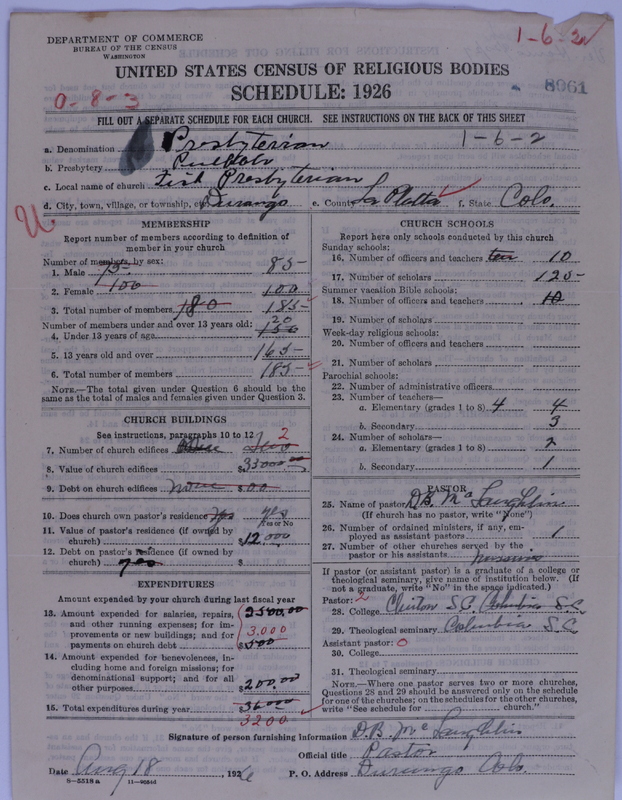 DEPARTMENT OF COMMERCE
BUREAU OF THE CENSUS
WASHINGTON
1-6-2
UNITED STATES CENSUS OF RELIGIOUS BODIES
SCHEDULE: 1926
8961
0-8-3
FILL OUT A SEPARATE SCHEDULE FOR EACH CHURCH. SEE INSTRUCTIONS ON THE BACK OF THIS SHEET
a. Denomination Presbyterian 1-6-2
b. Presbytery Pueblo
c. Local name of church First Presbyterian
d. City, town, village, or township, etc. Durango e. County La Platta f. State Colo.
MEMBERSHIP
Report number of members according to definition of member in your church
Number of members, by sex:
1. Male 75 85
2. Female 100 100
3. Total number of members 180 185
Number of members under and over 13 years old:
4. Under 13 years of age 20 150
5. 13 years old and over 165
6. Total number of members 185
NOTE.—The total given under Question 6 should be the same as the total of males and females given under Question 3.
CHURCH BUILDINGS
See instructions, paragraphs 10 to 12
7. Number of church edifices 2
8. Value of church edifices $33000.00
9. Debt on church edifices none $00
10. Does church own pastor's residence yes yes
Yes or No
11. Value of pastor's residence (if owned by church) $12,000
12. Debt on pastor's residence (if owned by church) $
EXPENDITURES
Amount expended by your church during last fiscal year
13. Amount expended for salaries, repairs, and other running expenses; for improvements or new buildings; and for payments on church debt 2500.00 3.000 $500
14. Amount expended for benevolences, including home and foreign missions; for denominational support; and for all other purposes $200.00
15. Total expenditures during year $36000
3200
CHURCH SCHOOLS
Report here only schools conducted by this church
Sunday schools:
16. Number of officers and teachers ten 10
17. Number of scholars 125
Summer vacation Bible schools:
18. Number of officers and teachers 10
19. Number of scholars
Week-day religious schools:
20. Number of officers and teachers
21. Number of scholars
Parochial schools:
22. Number of administrative officers
23. Number of teachers—
a. Elementary (grades 1 to 8) 4 4
b. Secondary 3
24. Number of scholars—
a. Elementary (grades 1 to 8) 2
b. Secondary 1
PASTOR
25. Name of pastor D.B. McLaughlin
(If church has no pastor, write "None")
26. Number of ordained ministers, if any, employed as assistant pastors 1
27. Number of other churches served by the pastor or his assistants
If pastor (or assistant pastor) is a graduate of a college or theological seminary, give name of institution below. (If not a graduate, write "No" in the space indicated.)
Pastor: 2
28. College Clinton S.C. Columbia S.C.
29. Theological seminary Columbia S.C.
Assistant pastor: 0
30. College
31. Theological seminary
NOTE.—Where one pastor serves two or more churches, Questions 28 and 29 should be answered only on the schedule for one of the churches; on the schedules for the other churches, write "See schedule for ______ church."
Signature of person furnishing information D.B. McLaughlin
Official title Pastor
Date Aug 18, 1926 P. O. Address Durango Colo.
8—5518a 11—9624d